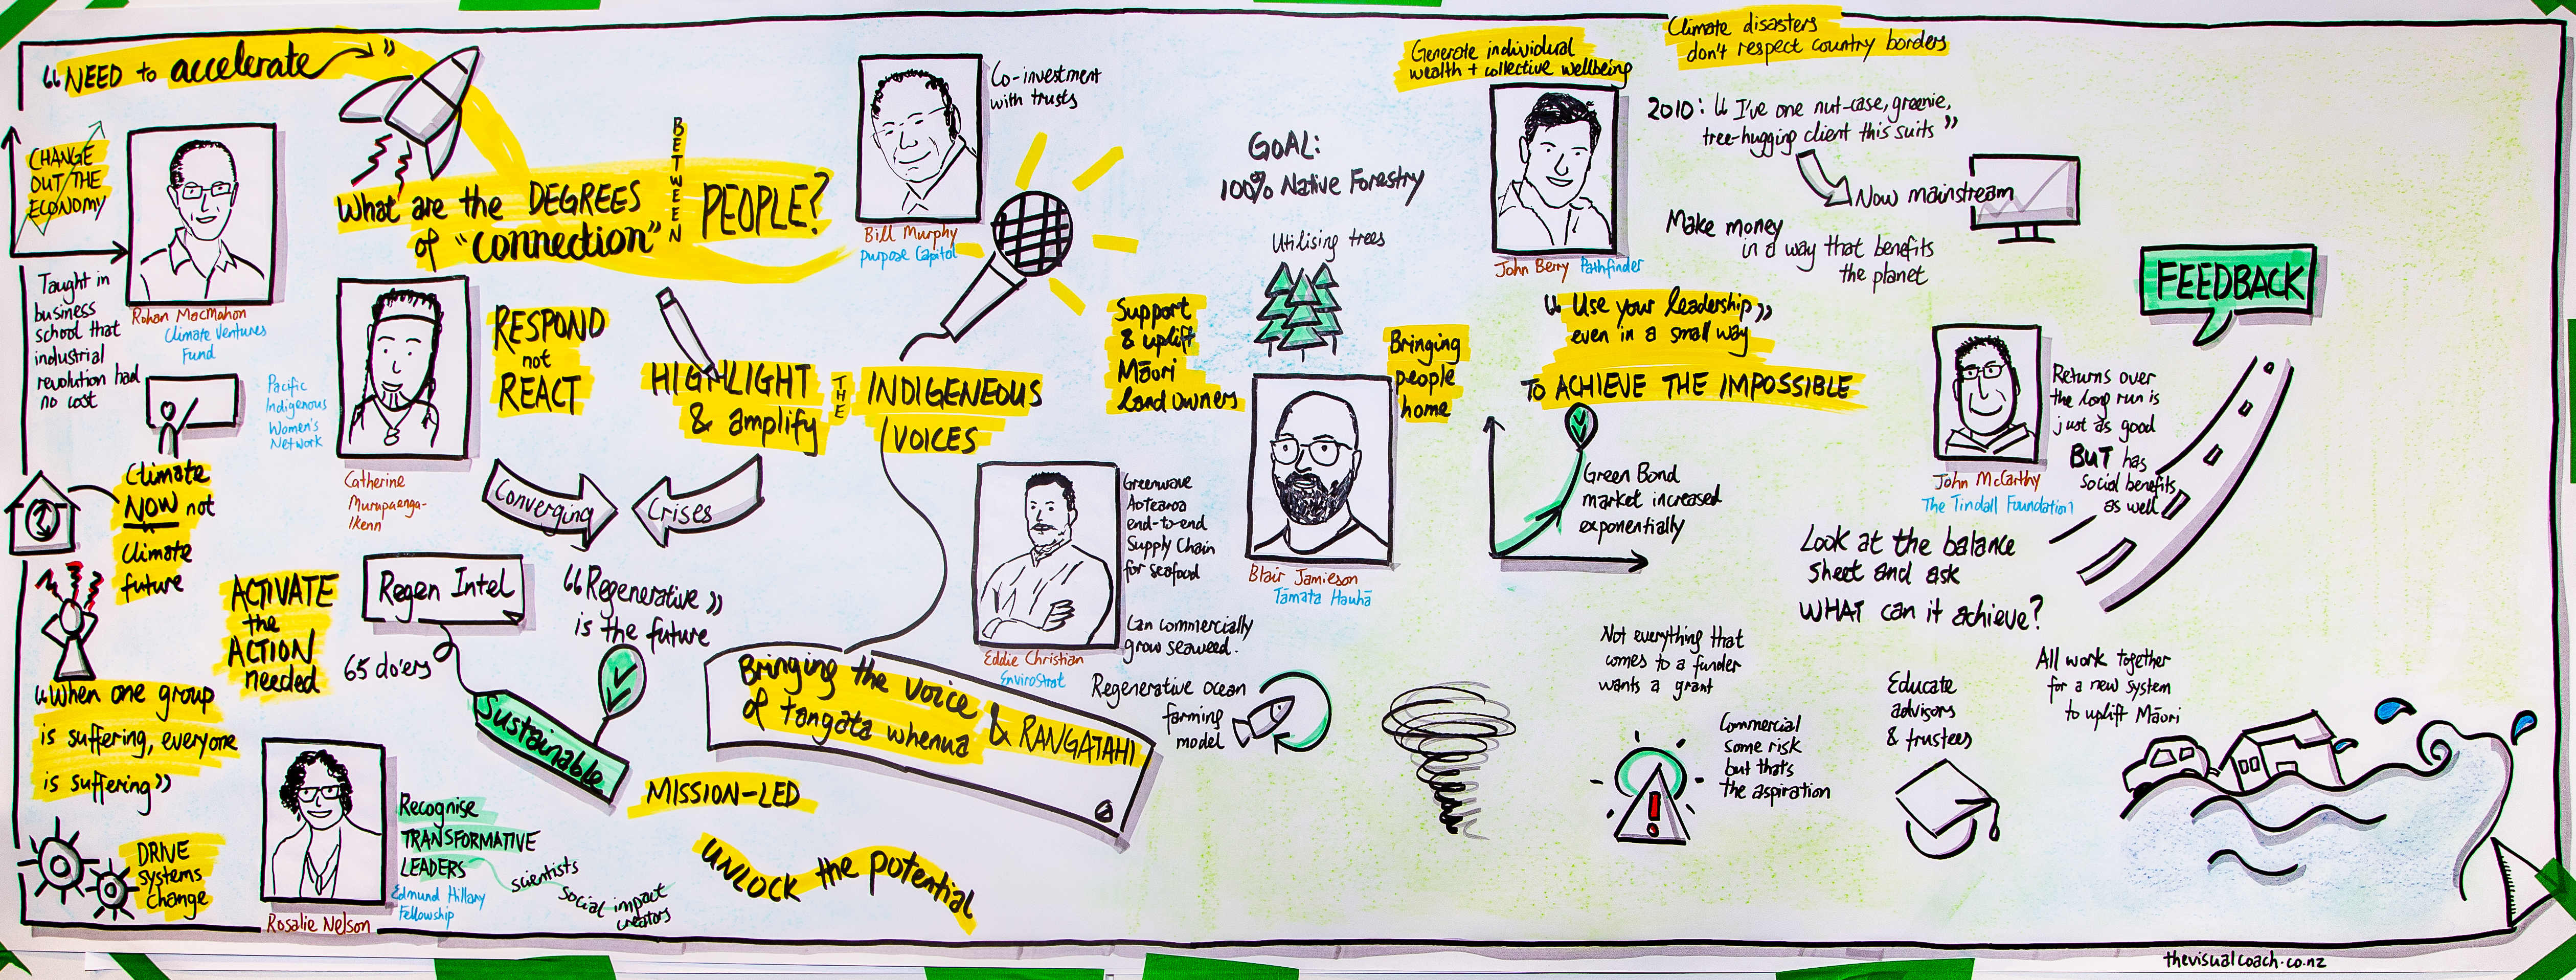 "NEED to accelerate"
CHANGE
OUT THE
ECONOMY
Rohan MacMahon
Climate Ventures
Fund
Taught in
business
school that
industrial
revolution had
no cost
What are the DEGREES
of "connection"
BETWEEN
PEOPLE?
Pacific
Indigenous
Women's
Network
Catherine
Murupaenga-
Ikenn
RESPOND
not
REACT
HIGHLIGHT
& amplify
THE
INDIGENEOUS
VOICES
Converging
Crises
Climate
NOW not
Climate
future
ACTIVATE
the
ACTION
needed
Regen Intel
65 do'ers
Sustainable
"Regenerative"
is the future
"When one group
is suffering, everyone
is suffering"
DRIVE
systems
change
Rosalie Nelson
Recognise
TRANSFORMATIVE
LEADERS
Edmund Hillary
Fellowship
scientists
Social impact
creators
MISSION-LED
UNLOCK the potential
Bringing the voice
of tangata whenua
& RANGATAHI
Bill Murphy
purpose Capital
Co-investment
with trusts
Eddie Christian
EnviroStrat
Greenwave
Aotearoa
end-to-end
Supply Chain
for seafood
Can commercially
grow seaweed.
Regenerative ocean
farming
model
GOAL:
100% Native Forestry
Utilising trees
Support
& uplift
Māori
land owners
Bringing
people
home
Blair Jamieson
Tāmata Hauhā
Generate individual
wealth + collective wellbeing
Climate disasters
don't respect country borders
John Berry Pathfinder
2010: "I've one nut-case, greenie,
tree-hugging client this suits"
Now mainstream
Make money
in a way that benefits
the planet
"Use your leadership"
even in a small way
TO ACHIEVE THE IMPOSSIBLE
Green Bond
market increased
exponentially
FEEDBACK
John McCarthy
The Tindall Foundation
Returns over
the long run is
just as good
BUT has
social benefits
as well
Look at the balance
sheet and ask
WHAT can it achieve?
Not everything that
comes to a funder
wants a grant
Commercial
some risk
but that's
the aspiration
Educate
advisors
& trustees
All work together
for a new system
to uplift Māori
thevisualcoach.co.nz